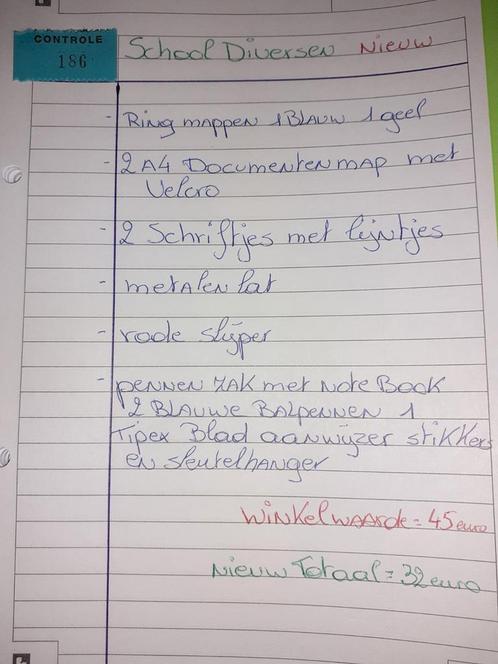 CONTROLE
186
School Diversen Nieuw
- Ring mappen 1 Blauw 1 geel
- 2 A4 Documenten map met
Velcro
- 2 Schriftjes met lijntjes
- metalen lat
- roode slijper
- pennen zak met Note Book
2 Blauwe Balpennen 1
Tipex Blad aanwijzer stikkers
en sleutelhanger
Winkelwaarde = 45 euro
Nieuw Totaal = 32 euro